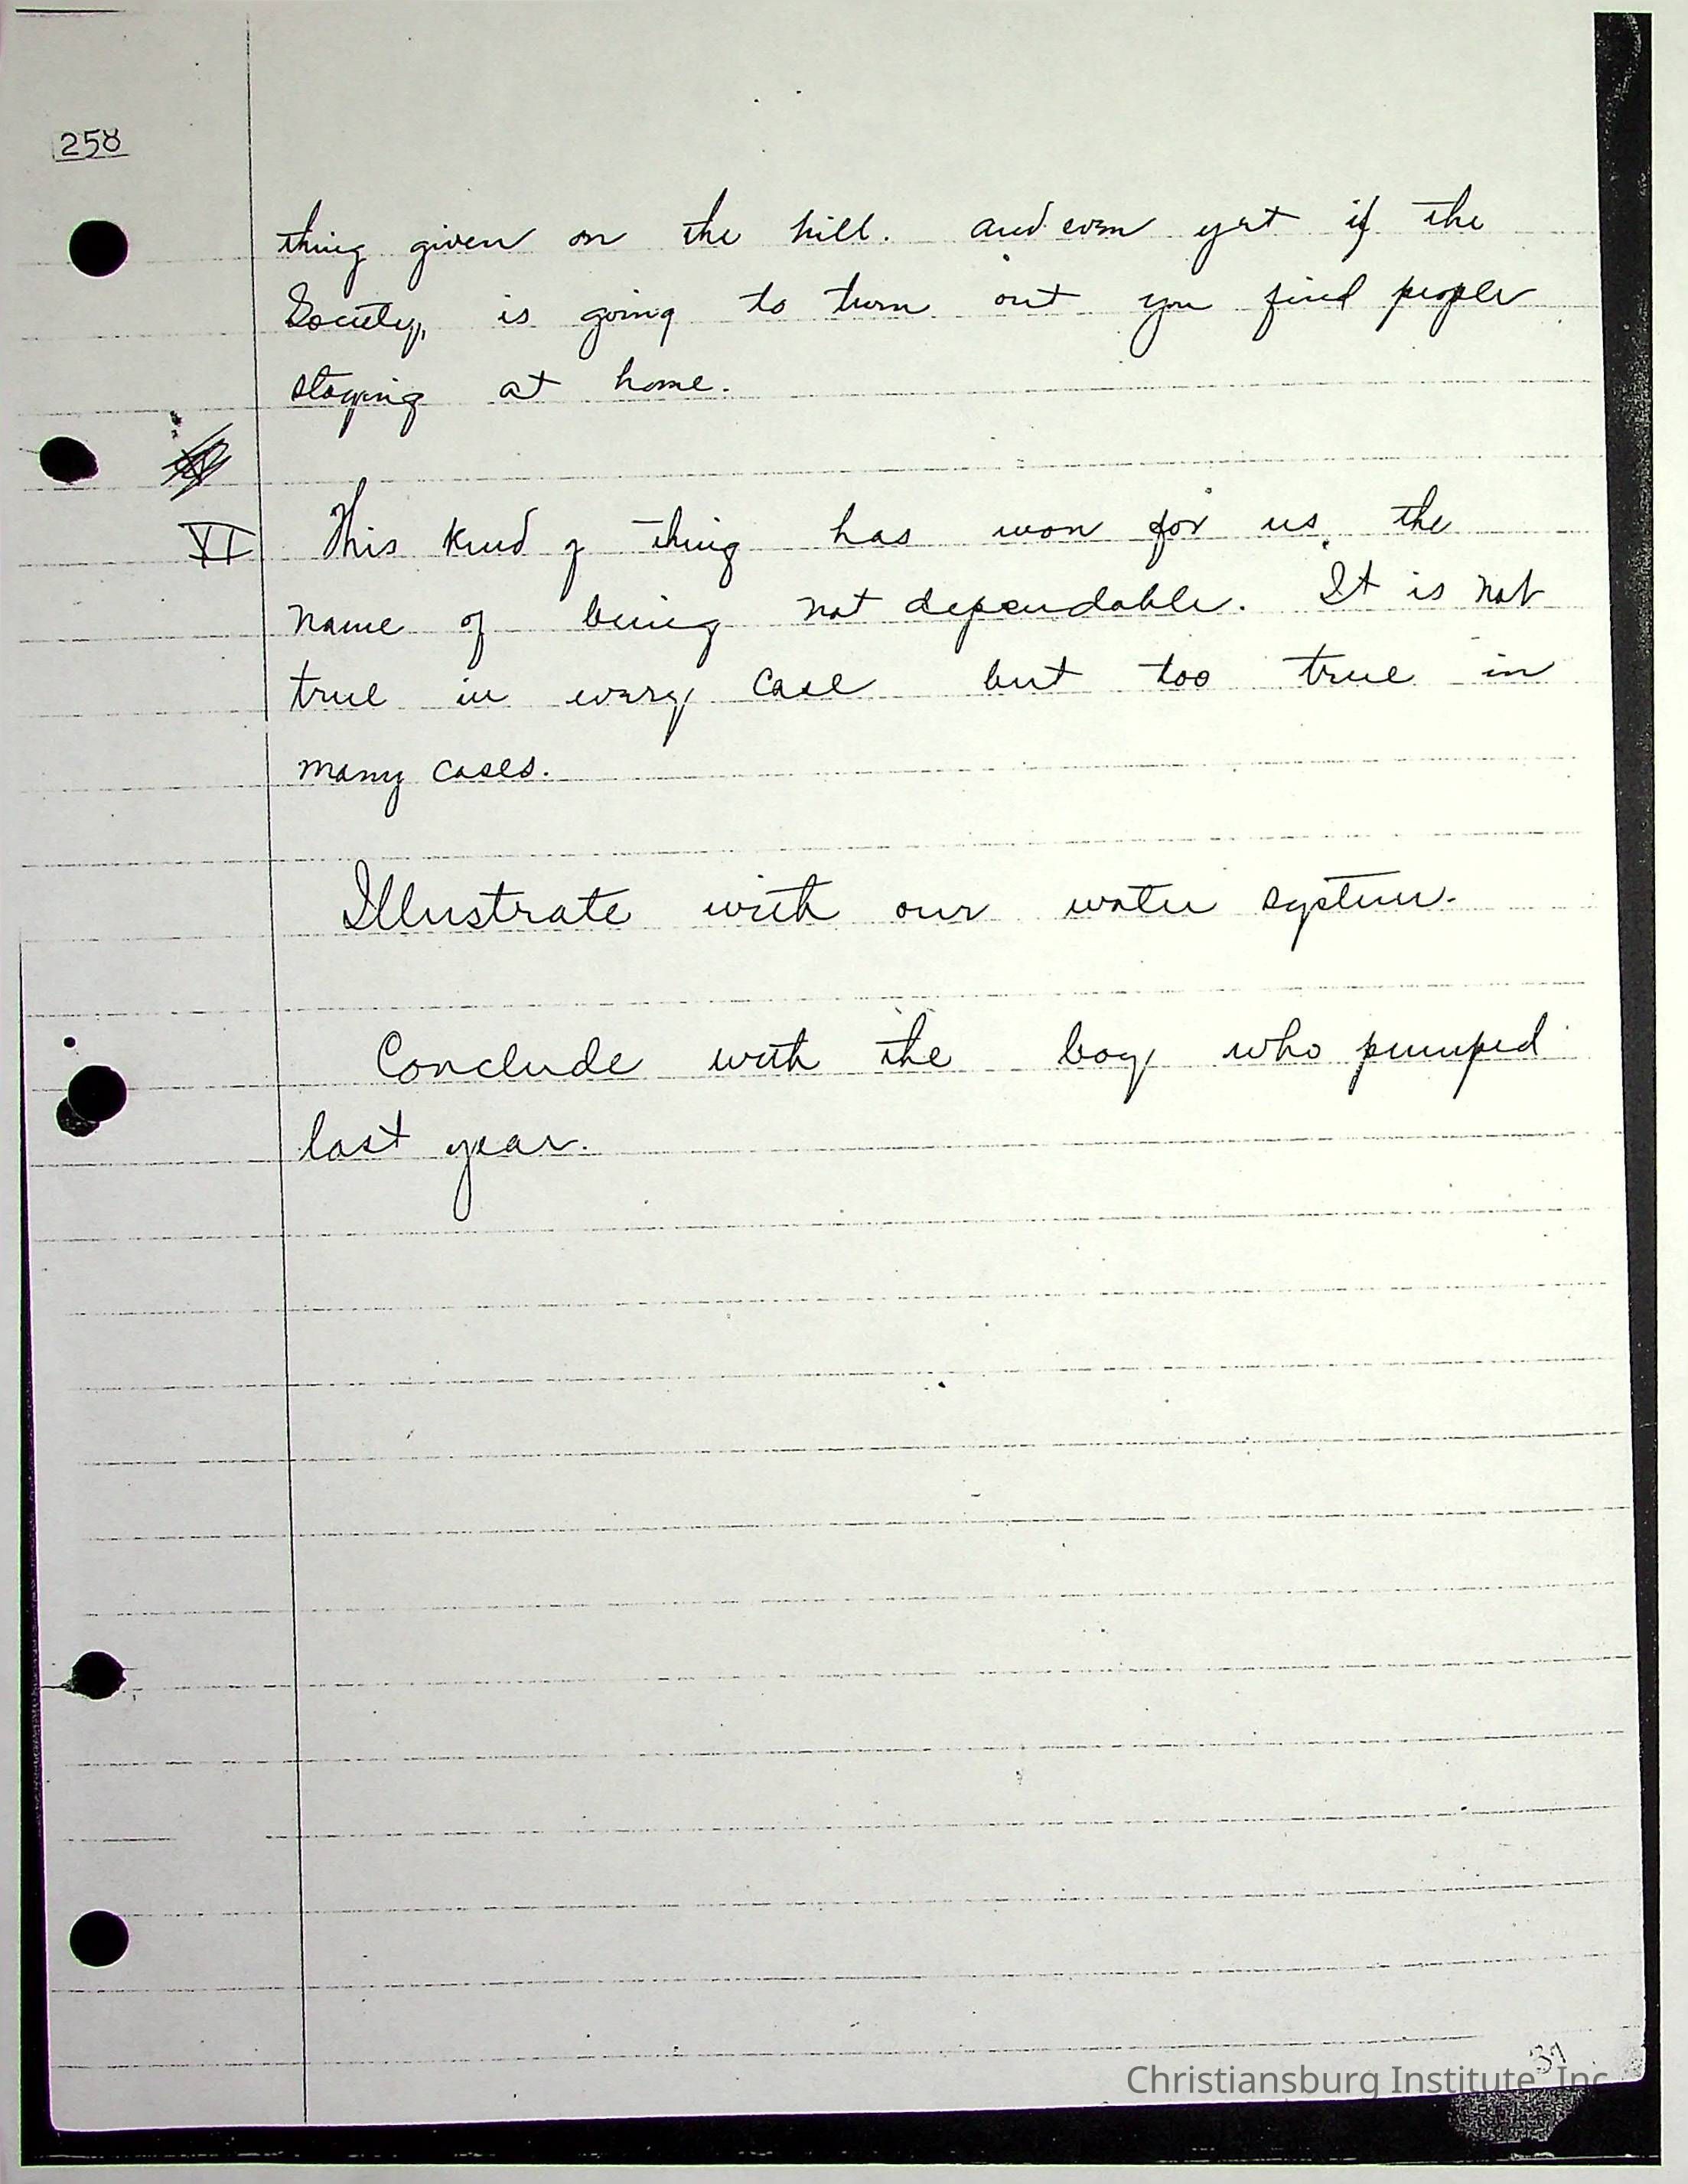 258
thing given on the hill. and even yet if the
Society, is going to turn out you find people
staying at home.
VI This kind of thing has won for us the
name of being not dependable. It is not
true in every case but too true in
many cases.
Illustrate with our water system.
Conclude with the boy who pumped
last year.
31
Christiansburg Institute, Inc